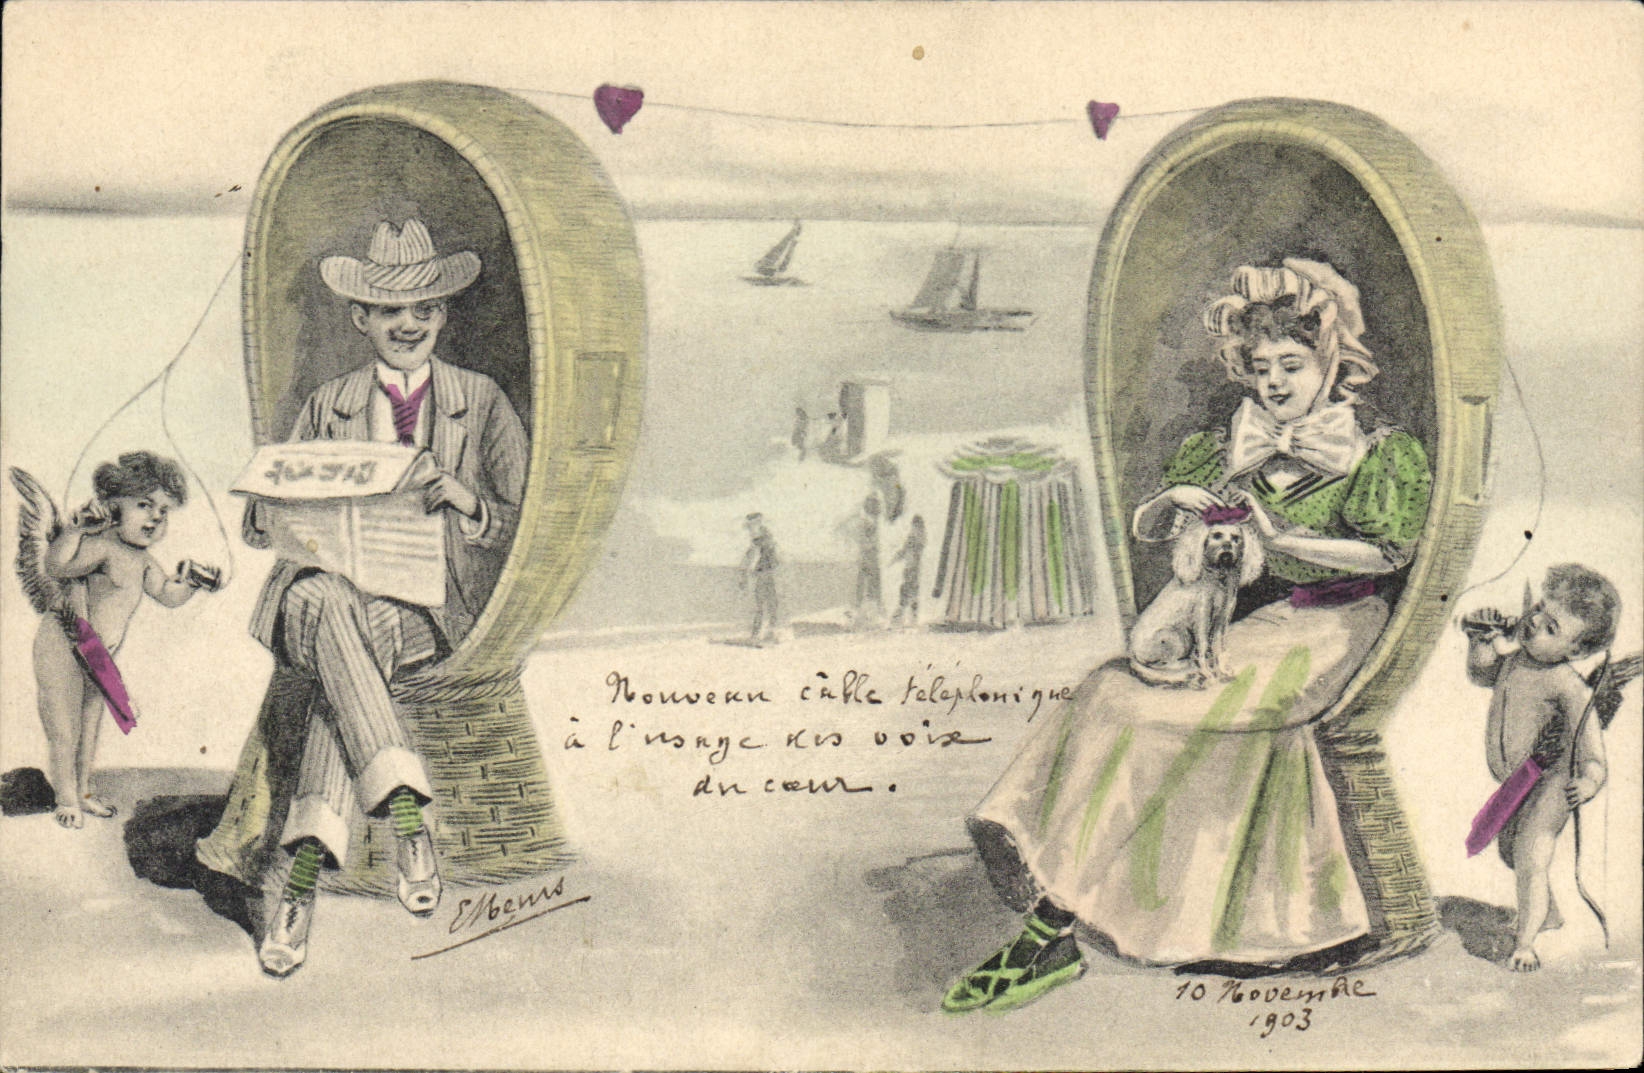 Nouveau câble téléphonique
à l'usage des voix
du cœur.
10 Novembre
1903